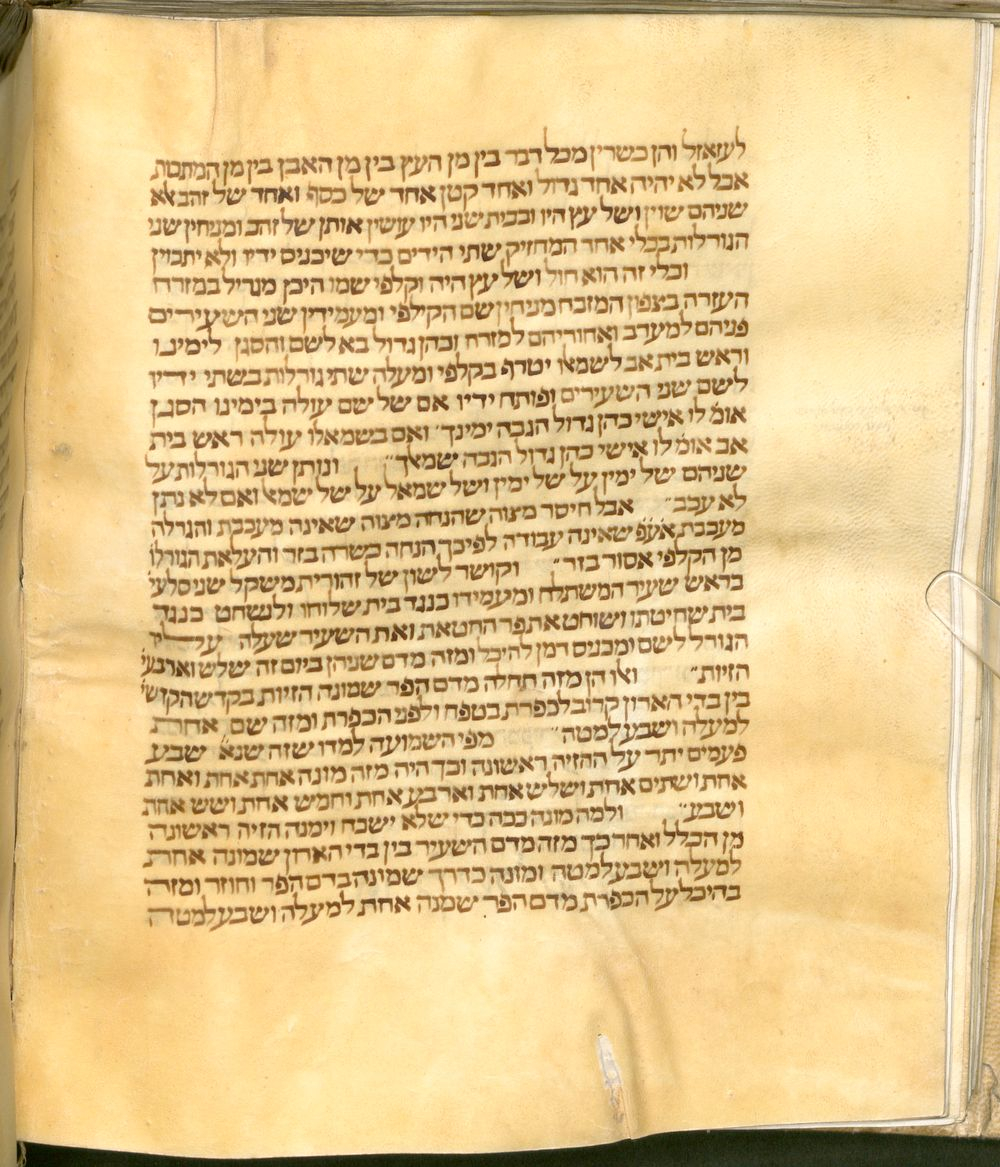 לעזאזל והן כשרין מכל דבר בין מן העץ בין מן האבן בין מן המתכות
אבל לא יהיה אחד גדול ואחד קטן אחד של כסף ואחד של זהב אלא
שניהם שוין ושל עץ היו ובבית שני היו עושין אותן של זהב ומניחין שני
הגורלות בכלי אחד המחזיק שתי הידים כדי שיכניס ידיו ולא יתכוין
וכלי זה הוא חול ושל עץ היה וקלפי שמו היכן מגריל במזרח
העזרה בצפון המזבח מניחין שם הקילפי ומעמידין שני השעירים
פניהם למערב ואחוריהם למזרח וכהן גדול בא לשם והסגן לימינו
וראש בית אב לשמאלו יטרף בקלפי ומעלה שתי גורלות בשתי ידיו
לשם שני השעירים ופותח ידיו אם של שם עולה בימינו הסגן
אומ׳ לו אישי כהן גדול הגבה ימינך״ ואם בשמאלו עולה ראש בית
אב אומ׳ לו אישי כהן גדול הגבה שמאלך״ ונותן שני הגורלות על
שניהם של ימין על של ימין ושל שמאל על של שמאל ואם לא נתן
לא עכב״ אבל חיסר מצוה שהנחה מצוה שאינה מעכבת והגרלה
מעכבת אע״פ שאינה עבודה לפיכך הנחה כשרה בזר והעלאת הגורלו׳
מן הקלפי אסור בזר״ וקושר לשון של זהורית משקל שני סלעי׳
בראש שעיר המשתלח ומעמידו כנגד בית שלוחו ולנשחט כנגד
בית שחיטתו ושוחט את פר החטאת ואת השעיר שעלה עליו
הגורל לשם ומכניס דמן להיכל ומזה מדם שניהן ביום זה שלש וארבעי׳
הזיות״ ואלו הן מזה תחלה מדם הפר שמונה הזיות בקדש הקדשי׳
בין בדי הארון קרוב לכפרת בטפח ולפני הכפרת ומזה שם אחרת
למעלה ושבע למטה״ מפי השמועה למדו שזה שנא׳ שבע
פעמים יתר על ההזיה ראשונה וכך היה מזה מונה אחת אחת ואחת
אחת ושתים אחת ושלש אחת וארבע אחת וחמש אחת ושש אחת
ושבע״ ולמה מונה ככה כדי שלא ישכח וימנה הזיה ראשונה
מן הכלל ואחר כך מזה מדם השעיר בין בדי הארון שמונה אחת
למעלה ושבע למטה ומונה כדרך שמינה בדם הפר וחוזר ומזה
בהיכל על הכפרת מדם הפר שמנה אחת למעלה ושבע למטה